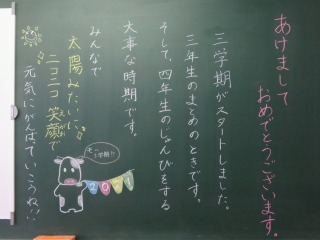 あけまして
おめでとうございます。
三学期がスタートしました。
三年生のまとめのときです。
そして、四年生のじゅんびをする
大事な時期です。
みんなで
太陽みたいに
ニコニコ笑顔で
えがお
元気にがんばっていこうね!!
モ〜
3学期!!
2021